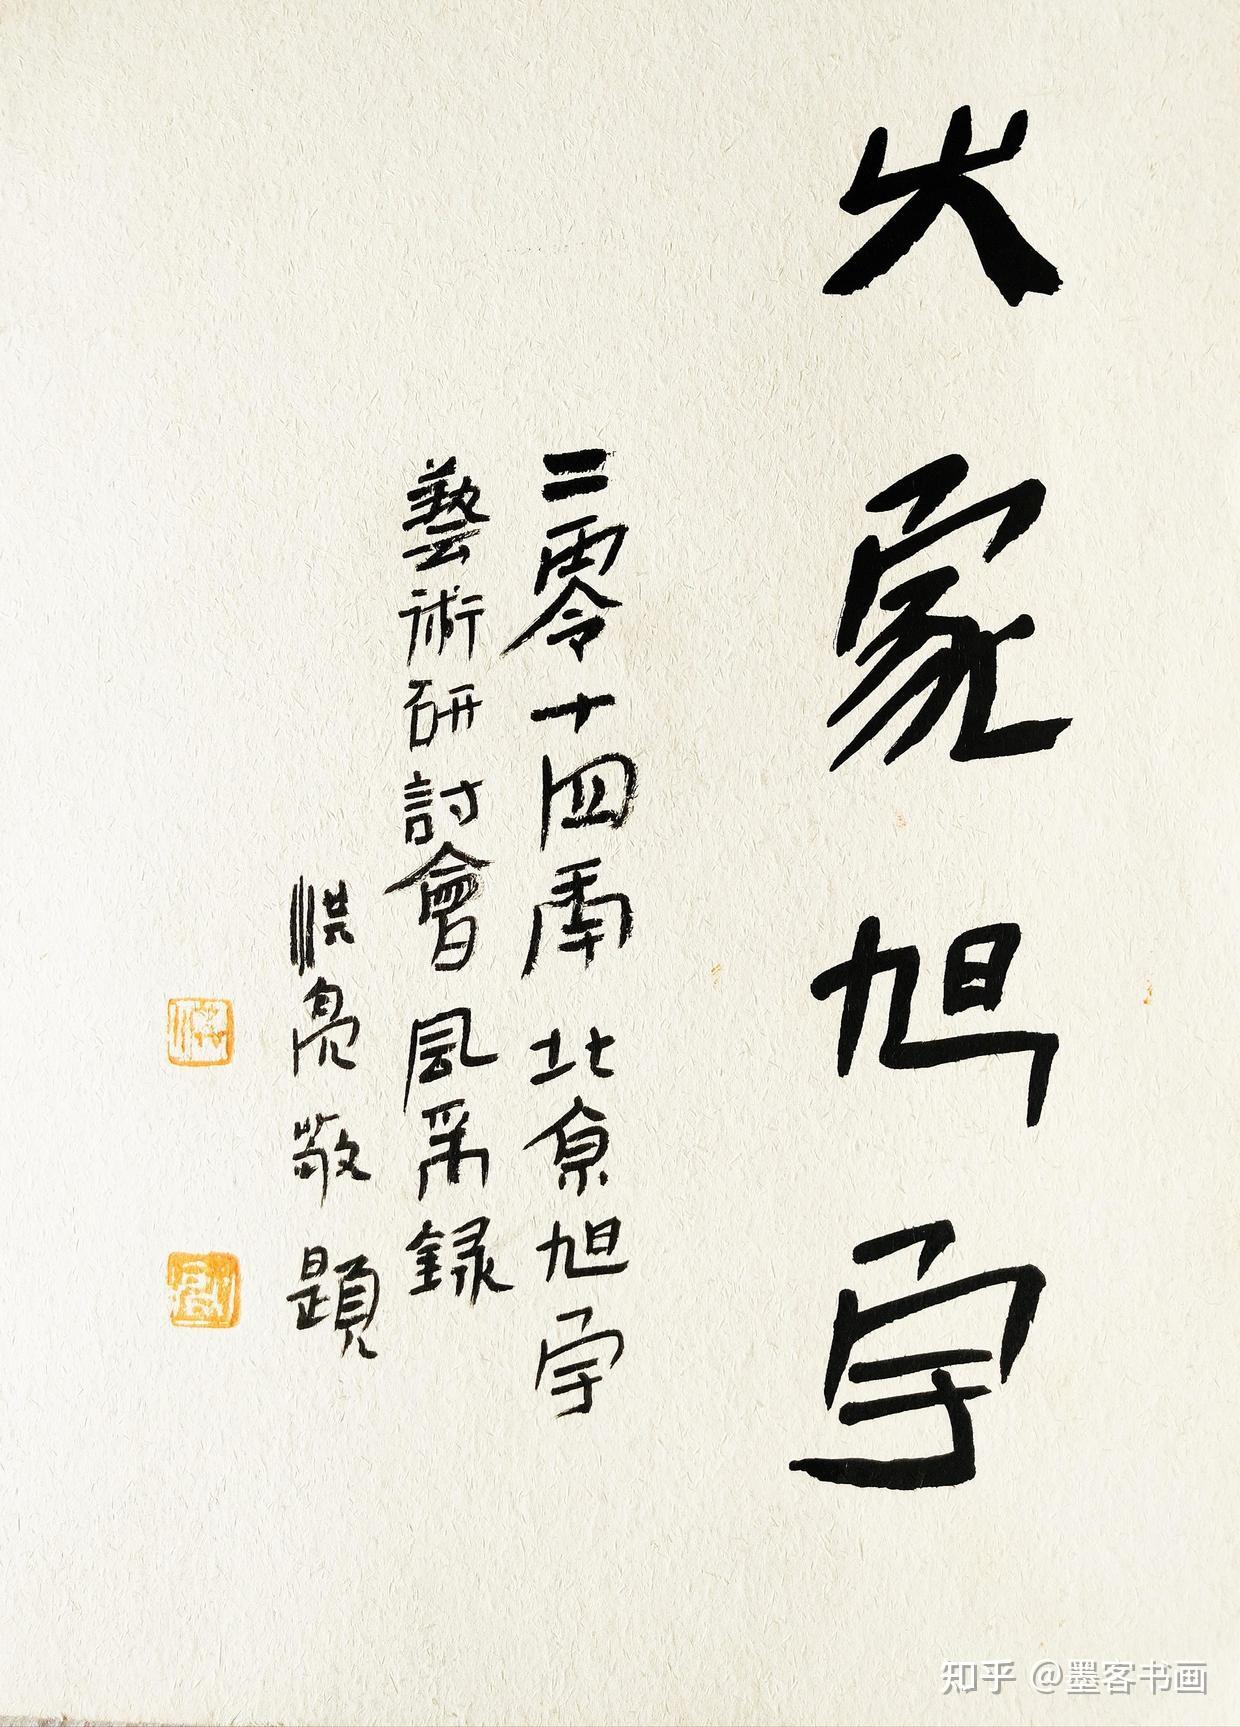 大家旭宇
二零十四年北京旭宇
藝術研討會風采録
洪亮敬題
洪
知乎 @墨客书画